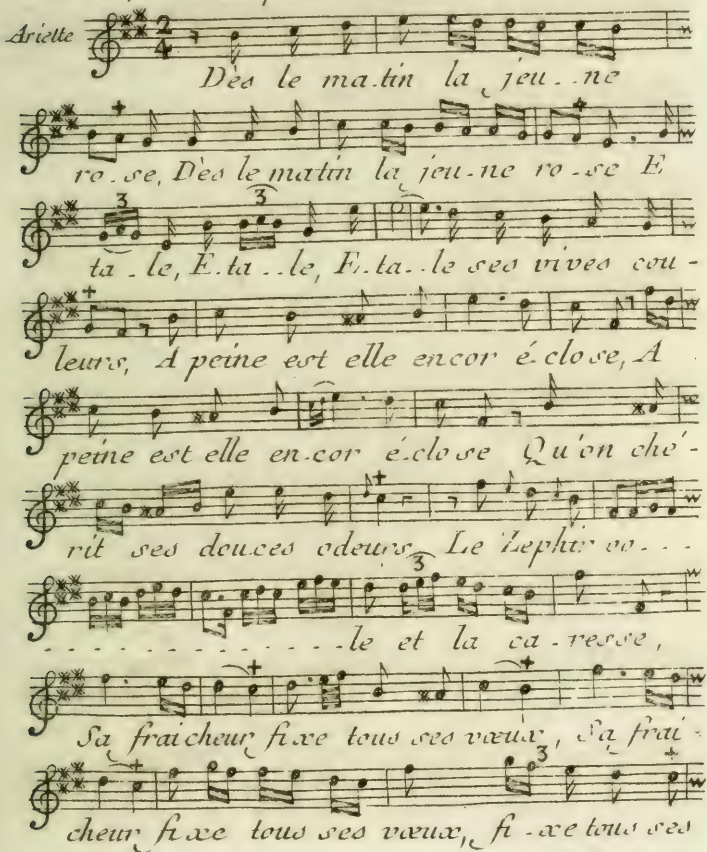 Ariette 2 4
Dès le ma-tin la jeu--ne
ro-se, Dès le matin la jeu-ne ro-se E
3 3
ta-le, E-ta--le, E-ta--le ses vives cou-
leurs, A peine est elle encor é close, A
peine est elle en-cor é-close Qu'on ché-
rit ses douces odeurs, Le Zephir vo...
3
. . . . . . . . . . . le et la ca-resse,
Sa fraicheur fixe tous ses vœux, Sa frai-
3
cheur fixe tous ses vœux, fi-xe tous ses